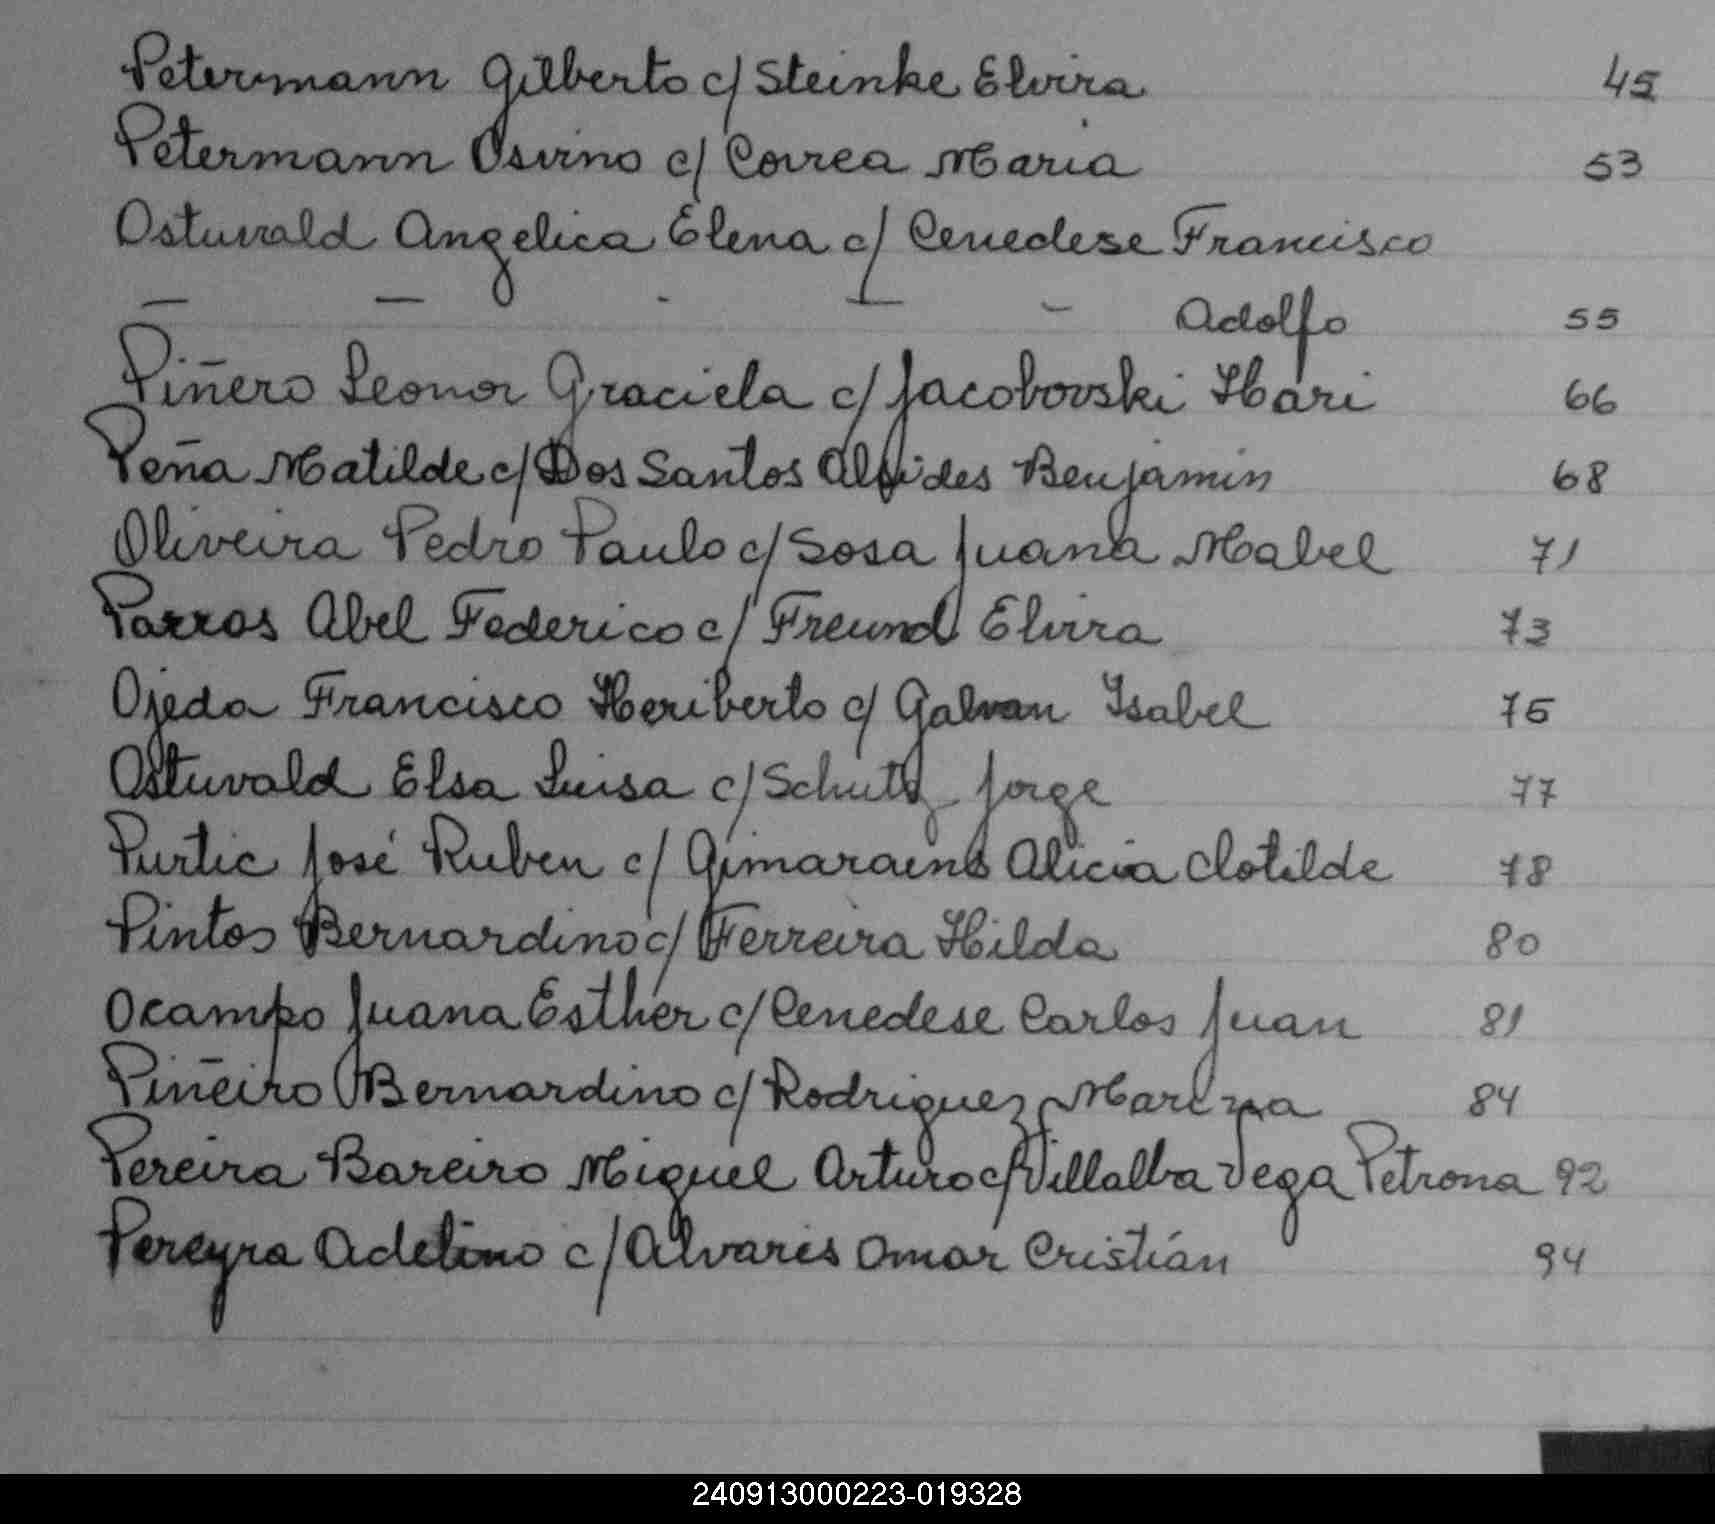 Petermann Gilberto c/ Steinke Elvira 45
Petermann Osvino c/ Correa Maria 53
Ostuvald Angelica Elena c/ Cenedese Francisco
— — - — - Adolfo 55
Piñero Leonor Graciela c/ Jacobovski Hari 66
Peña Matilde c/ Dos Santos Alsides Benjamin 68
Oliveira Pedro Paulo c/ Sosa Juana Mabel 71
Parras Abel Federico c/ Freund Elvira 73
Ojeda Francisco Heriberto c/ Galvan Isabel 75
Ostuvald Elsa Luisa c/ Schutz Jorge 77
Purtic José Ruben c/ Gimaraens Alicia Clotilde 78
Pintos Bernardino c/ Ferreira Hilda 80
Ocampo Juana Esther c/ Cenedese Carlos Juan 81
Piñeiro Bernardino c/ Rodriguez Mariza 84
Pereira Bareiro Miguel Arturo c/ Villalba Vega Petrona 92
Pereyra Adelino c/ Alvares Omar Cristián 94
240913000223-019328